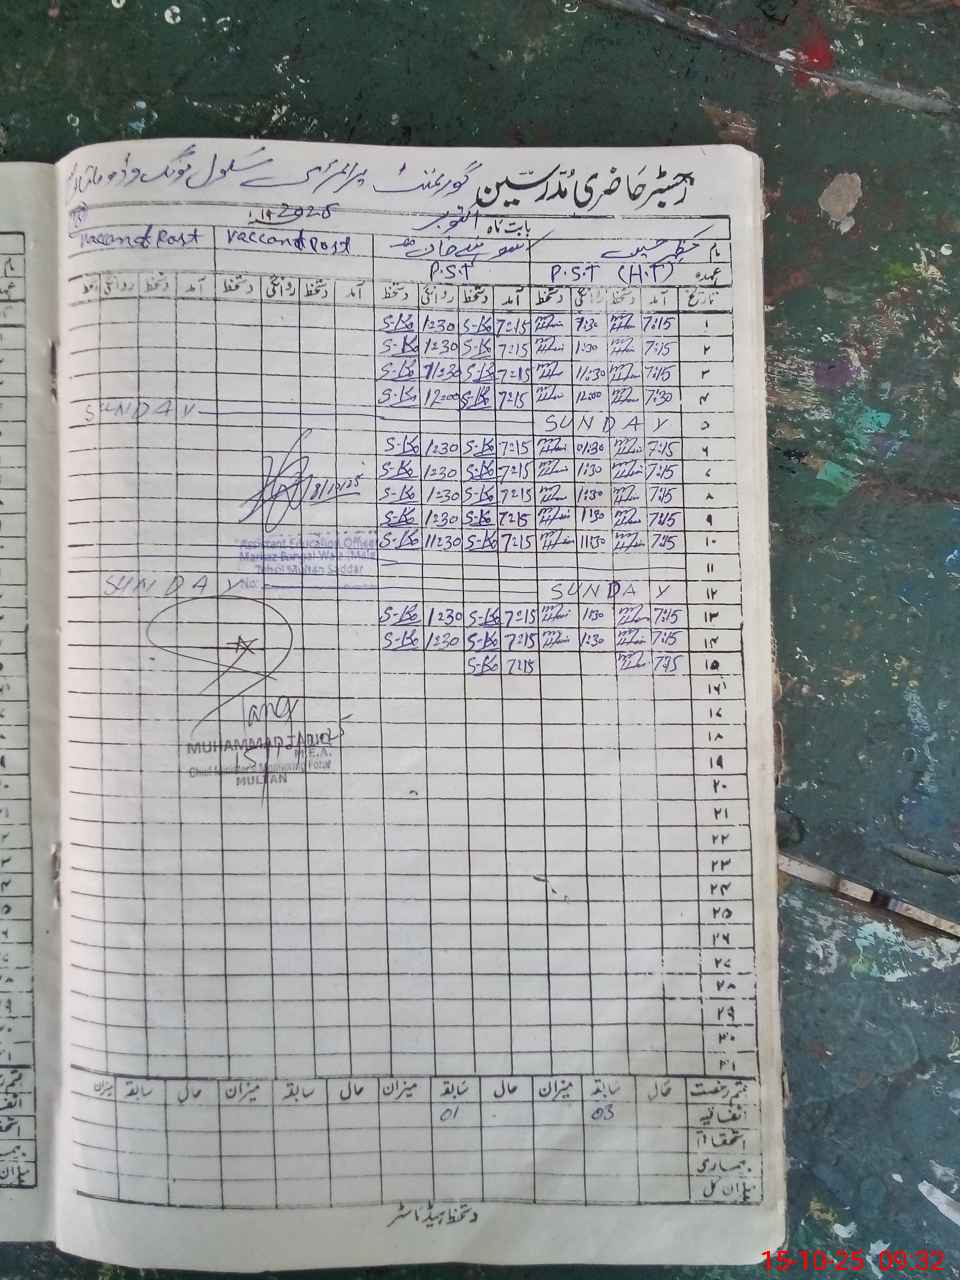 رجسٹر حاضری مدرسین گورنمنٹ پرائمری سکول
بابت ماہ اکتوبر 2025
نام Vaccand Post Vaccand Post
عہدہ P.S.T (H.T) P.S.T
تاریخ آمد دستخط روانگی دستخط آمد دستخط روانگی دستخط آمد روانگی دستخط آمد دستخط روانگی
۱ 7:15 1:30 7:15 1:30
۲ 7:15 1:30 7:15 1:30
۳ 7:15 11:30 7:15 11:30
۴ 7:30 12:00 7:15 12:00
۵ SUNDAY SUNDAY
۶ 7:15 01:30 7:15 1:30
۷ 7:15 1:30 7:15 1:30
۸ 7:15 1:30 7:15 1:30
8/10/25
۹ 7:15 1:30 7:15 1:30
۱۰ 7:15 11:30 7:15 11:30
Assistant Education Officer
۱۱
Tehsil Multan Saddar
۱۲ SUNDAY SUNDAY
No:
۱۳ 7:15 1:30 7:15 1:30
۱۴ 7:15 1:30 7:15 1:30
۱۵ 7:15 7:15
۱۶
۱۷
۱۸
MUHAMMAD
M.E.A.
۱۹
Chief Minister's Monitoring Force
MULTAN
۲۰
۲۱
۲۲
۲۳
۲۴
۲۵
۲۶
۲۷
۲۸
۲۹
۳۰
۳۱
قسم رخصت حال سابقہ میزان حال سابقہ میزان حال سابقہ میزان حال سابقہ میزان
اتفاقیہ 03 01
استحقاقی
بیماری
میزان کل
دستخط ہیڈ ماسٹر
15-10-25 09:32